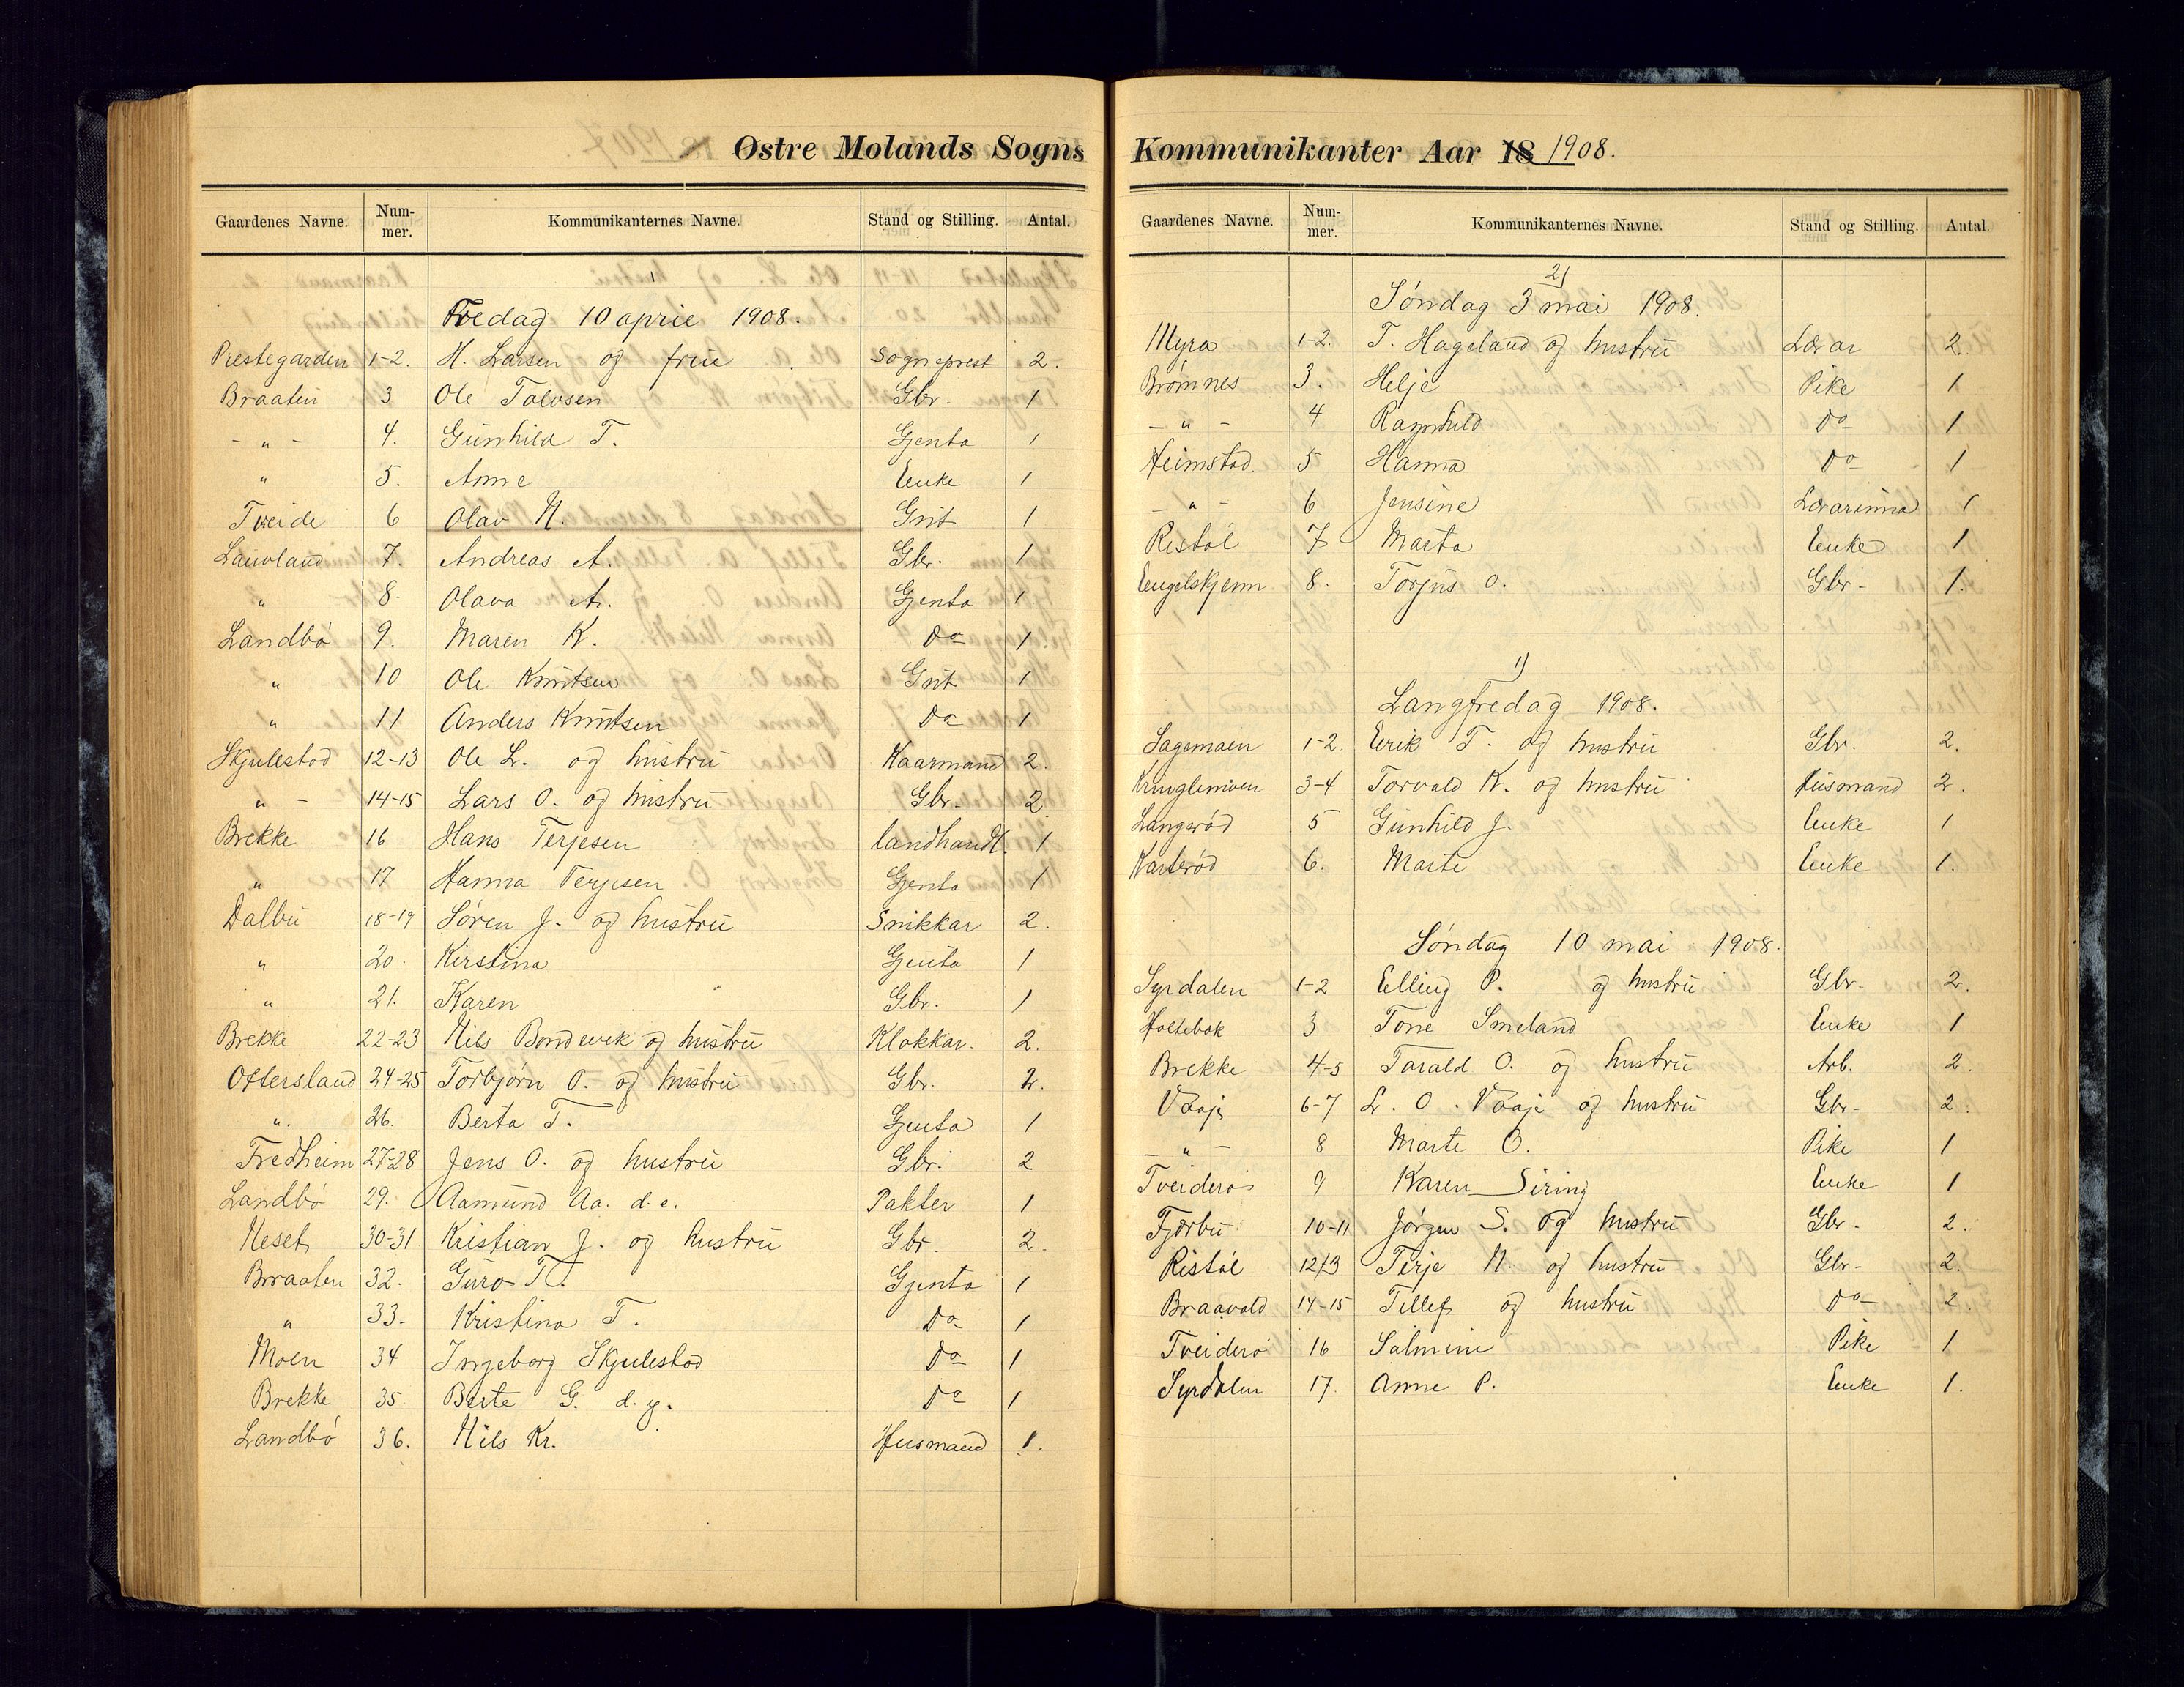 Østre Molands Sogns
Gaardenes Navne. Num-mer. Kommunikanternes Navne. Stand og Stilling. Antal.
Fredag 10 april 1908.
Prestegarden 1-2. H. Larsen og frue Sogneprest 2.
Braaten 3 Ole Talvsen Gbr. 1
- " - 4. Gunhild T. Gjenta 1
" 5. Anne Enke 1
Tveide 6 Olav N. Gut 1
Lauvland 7. Andreas A. Gbr. 1
" 8. Olava A. Gjenta 1
Landbø 9. Maren K. Do 1
" 10 Ole Knutsen Gut 1
" 11 Anders Knutsen Do 1
Skjulestad 12-13 Ole L. og hustru Kaarmand 2.
" - 14-15 Lars O. og hustru Gbr. 2
Brekke 16 Hans Terjesen landhandl. 1
" 17 Hanna Terjesen Gjenta 1
Dalbu 18-19 Søren J. og hustru Snikkar 2.
" 20. Kirstina Gjenta 1
" 21. Karen Gbr. 1
Brekke 22-23 Nils Bondevik og hustru Klokkar. 2.
Ottersland 24-25 Torbjørn O. og hustru Gbr. 2.
". 26. Berta T. Gjenta 1
Fredheim 27-28 Jens O. og hustru Gbr. 2
Landbø 29. Aamund Aa. d.e. Pakter 1
Neset 30-31 Kristian J. og hustru Gbr. 2.
Braaten 32. Guro T. Gjenta 1
" 33. Kristina T. Do 1
Moen 34 Ingeborg Skjulestad Do 1
Brekke 35 Berte G. d.y. Do 1
Landbø 36. Nils Kr. Husmand 1.
Kommunikanter Aar 18 1908.
Gaardenes Navne. Num-mer. Kommunikanternes Navne. Stand og Stilling. Antal.
2)
Søndag 3 mai 1908.
Myra 1-2. T. Hageland og hustru Lærar 2.
Brømnes 3. Helje Pike 1
- " - 4 Ragnhild Do 1
Heimstad 5 Hanna Do 1
- " - 6 Jensine Lærarinna 1
Ristøl 7 Marta Enke 1
Engelskjenn 8. Torjus O. Gbr. 1.
1)
Langfredag 1908.
Sagemoen 1-2. Eerik T. og hustru Gbr. 2.
Kringlemoen 3-4 Torvald K. og hustru Husmand 2.
Langerød 5 Gunhild J. Enke 1
Karterød 6. Marte Enke 1.
Søndag 10 mai 1908.
Syrdalen 1-2 Elling P. og hustru Gbr. 2.
Holtebek 3 Tone Smeland Enke 1
Brekke 4-5 Tarald O. og hustru Arb. 2.
Vaaje 6-7 L. O. Vaaje og hustru Gbr. 2.
- " - 8 Marte O. Pike 1
Tveiderø 9 Karen Siring Enke 1
Fjærbu 10-11 Jørgen S. og hustru Gbr. 2.
Ristøl 12/13 Terje N. og hustru Gbr. 2.
Braavold 14-15 Tellef og hustru Do 2
Tveiderø 16 Salmine Pike 1
Syrdalen 17. Anne P. Enke 1.